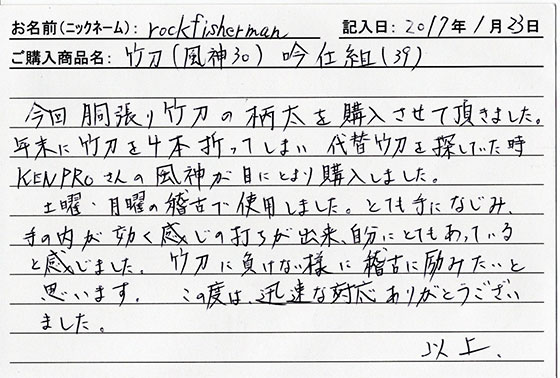 お名前(ニックネーム): rockfisherman 記入日: 2017年 1月 23日
ご購入商品名: 竹刀(風神30) 吟 仕組(39)
今回 胴張り竹刀の柄太を購入させて頂きました。
年末に竹刀を4本折ってしまい 代替竹刀を探していた時
KENPROさんの風神が目にとまり購入しました。
土曜・月曜の稽古で使用しました。とても手になじみ、
手の内が効く感じの打ちが出来、自分にとてもあっている
と感じました。竹刀に負けない様に稽古に励みたいと
思います。 この度は、迅速な対応ありがとうござい
ました。
以上.